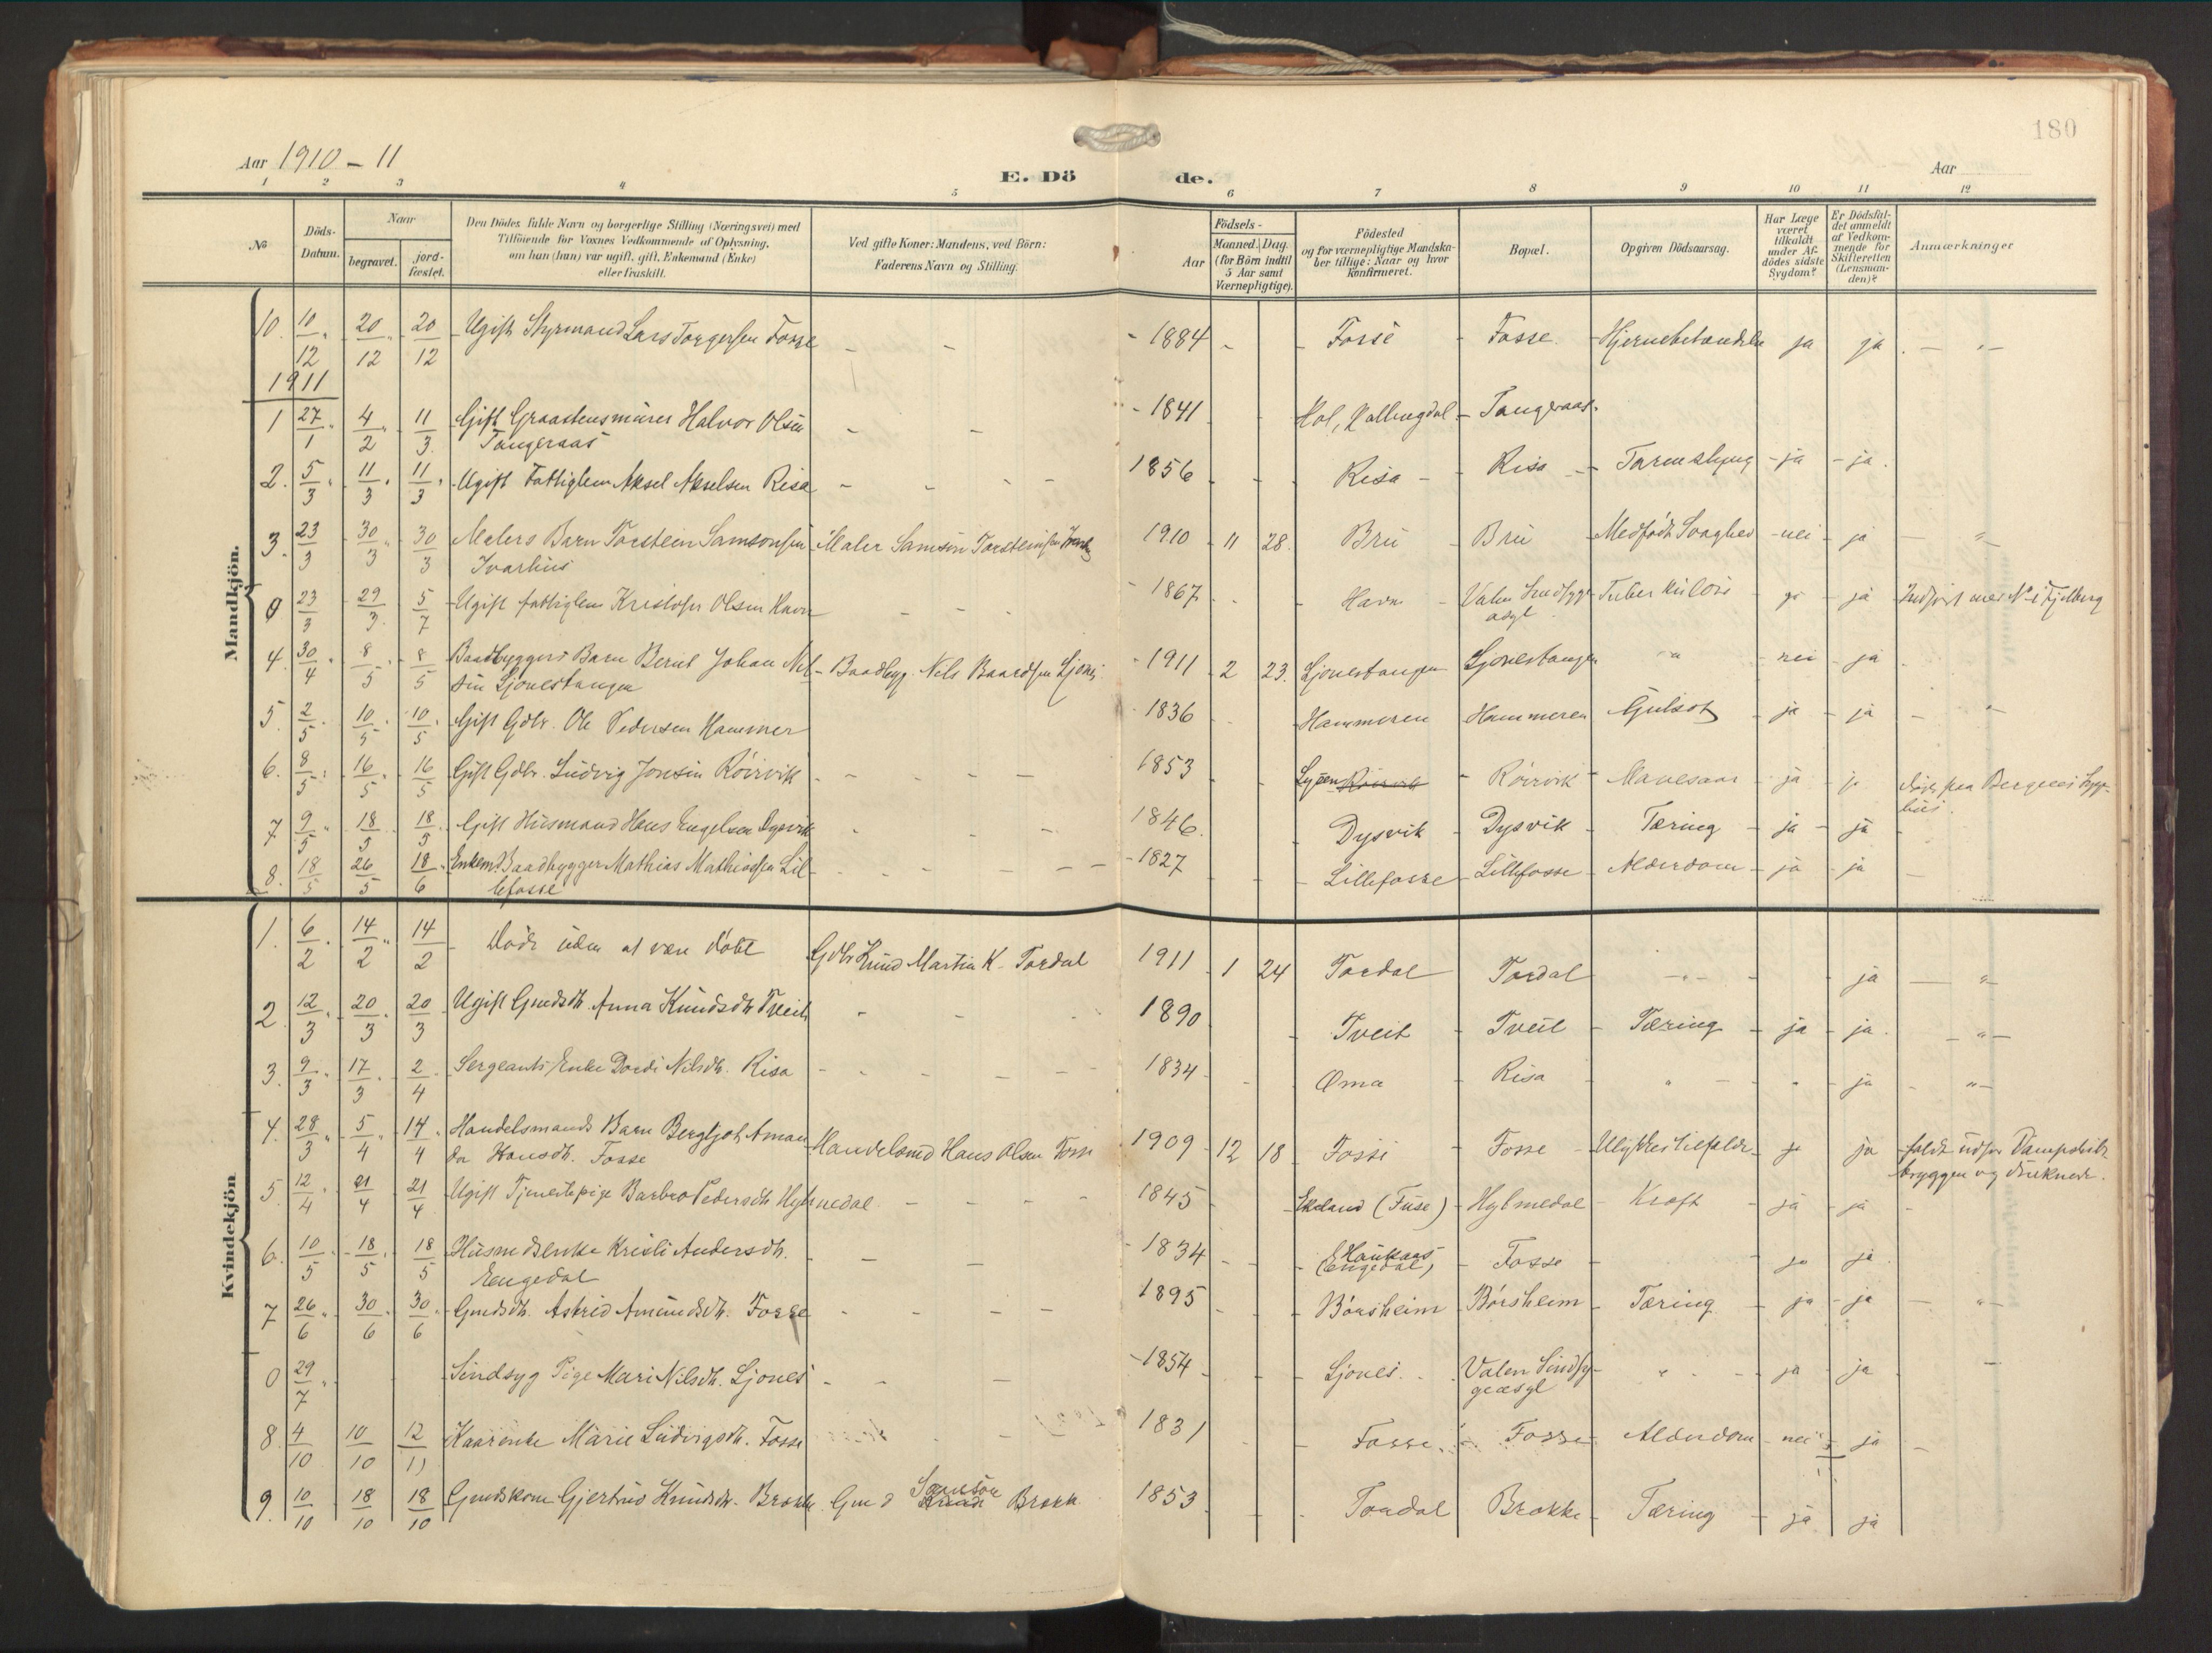 180
Aar 1910 - 11
E. Dö de.
Aar
1 2 3 4 5 6 7 8 9 10 11 12
№
Döds-Datum.
Naar
begravet.
jord-fæstet.
Den Dödes fulde Navn og borgerlige Stilling (Næringsvei) med
Tilföiende for Voxnes Vedkommende af Oplysning,
om han (hun) var ugift, gift, Enkemand (Enke)
eller fraskilt.
Ved gifte Koner: Mandens, ved Börn:
Faderens Navn og Stilling.
Födsels-
Aar
Maaned. Dag.
(for Börn indtil
5 Aar samt
Værnepligtige).
Födested
og for værnepligtige Mandska-
ber tillige: Naar og hvor
Konfirmeret.
Bopæl.
Opgiven Dödsaarsag.
Har Læge
været
tilkaldt
under Af-
dödes sidste
Sygdom?
Er Dödsfal-
det anmeldt
af Vedkom-
mende for
Skifteretten
(Lensman-
den)?
Anmærkninger
Mandkjön.
10. 10/12 20/12 20/12 Ugift Styrmand Lars Torgersen Fosse - - 1884 - - Fosse - Fosse - Hjernebetændelse ja ja - " -
1911
1 27/1 4/2 11/3 Gift Graastensmurer Halvor Olsen
Tangeraas - - 1841 - Hol, Hallingdal - Tangeraas.
2. 5/3 11/3 11/3 Ugift Fattiglem Aksel Akselsen Risa - - 1856 - - Risa - Risa - Tarmslyng - ja - ja.
3. 23/3 30/3 30/3 Malers Barn Torstein Samsonsen
Ivarhus Maler Samson Torsteinsen 1910 - 11 28. Bru - Bru - Medfødt Svaghed - nei - ja - " -
0 23/3 29/3 5/7 Ugift fattiglem Kristofer Olsen Havn - - - 1867 - - Havn - Valen Sindssyge-
asyl Tuberkulose - ja - ja Indført med № i Fjelberg
4. 30/4 8/5 8/5 Baadbyggers Barn Bernt Johan Nil-
sen Ljonestangen - Baadbyg. Nils Baardsen Ljones - 1911 2 23. Ljonestangen Ljonestangen " nei - ja -
5 2/5 10/5 10/5 Gift Gdbr. Ole Pedersen Hammer 1836 - Hammeren Hammeren Gulsot - ja - ja - " -
6. 8/5 16/5 16/5 Gift Gdbr. Ludvig Jonsen Röirvik - - - 1853 - - Röirvik - Röirvik - Mavesaar - ja - ja Døde paa Bergens Syge-
hus.
7 9/5 18/5 18/5 Gift Husmand Hans Engelsen Dysvik - - 1846. - Dysvik - Dysvik - Tæring - ja - ja -
8. 18/5 26/5 18/6 Enkem. Baadbygger Mathias Mathiassen Lil-
lefosse - - - 1827 - - Lillefosse - Lillefosse - Alderdom - ja - ja -
Kvindekjön
1. 6/2 14/2 14/2 Døde uden at være døbt Gdbr Knud Martin K. Tordal 1911 - 1 24 Tordal Tordal - " - - ja - " -
2. 12/3 20/3 20/3 Ugift Gmdsdtr. Anna Knudsdtr Tveit - - 1890 - Tveit - Tveit - Tæring - ja - ja. - " -
3. 9/3 17/3 2/4 Sergeants Enke Dordi Nilsdtr. Risa - - - 1834 - - Oma - Risa - " - " - ja - " -
4. 28/3 5/4 14/4 Handelsmands Barn Bergljot Aman-
da Hansdtr. Fosse Handelsmd Hans Olsen Fosse 1909 - 12 18 Fosse - Fosse - Ulykkestilfælde - ja ja faldt udfor Dampskibs-
bryggen og druknede.
5 12/4 21/4 21/4 Ugift Tjenestepige Barbro Pedersdtr Hylmedal - - - 1845 - Ekeland (Fuse) - Hylmedal - Kræft - ja - ja -
6. 10/5 18/5 18/5 Husmdsenke Kristi Andersdtr.
Engedal - - - 1834 - - Haukaas
(Engedal) - Fosse - ja ja
7 26/6 30/6 30/6 Gmdsdtr. Astrid Amundsdtr. Fosse - - - 1895 - - Börsheim Börsheim - Tæring - ja - ja - " -
0 29/7 Sindsyg Pige Mari Nilsdtr. Ljones - - - 1854 - - Ljones. - Valen Sindsy-
geasyl " - - ja - ja -
8 4/10 10/10 12/11 Kaarenke Marie Ludvigsdtr. Fosse - - 1831 - - Fosse - Fosse - Alderdom - nei - ja -
9. 10/10 18/10 18/10 Gmdskone Gjertrud Knudsdtr. Brokke Gmd Samson Brokke 1853 - - Tordal Brokke - Tæring - ja ja